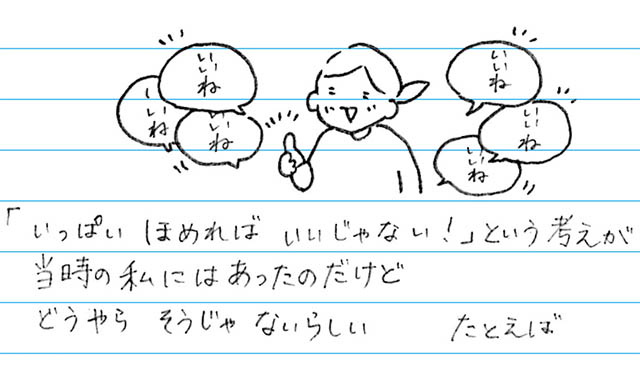 いいね
いいね
いいね
いいね
いいね
いいね
「いっぱい ほめれば いいじゃない!」という考えが
当時の私にはあったのだけど
どうやら そうじゃ ないらしい たとえば